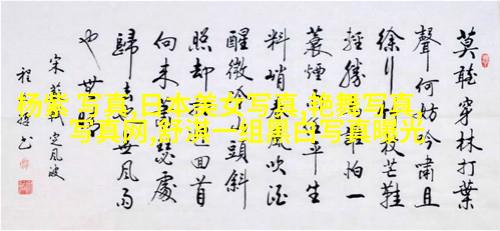 莫聽穿林打葉
聲何妨吟嘯且
徐行竹杖芒鞋
輕勝馬誰怕一
蓑煙雨任平生
料峭春風吹酒
醒微冷山頭斜
照却相迎回首
向来蕭瑟處
歸去也無風雨
也無晴
宋蘇軾定風波
程书
杨紫 写真,日本美女写真,艳舞写真,
写真网,舒淇一组黑白写真曝光